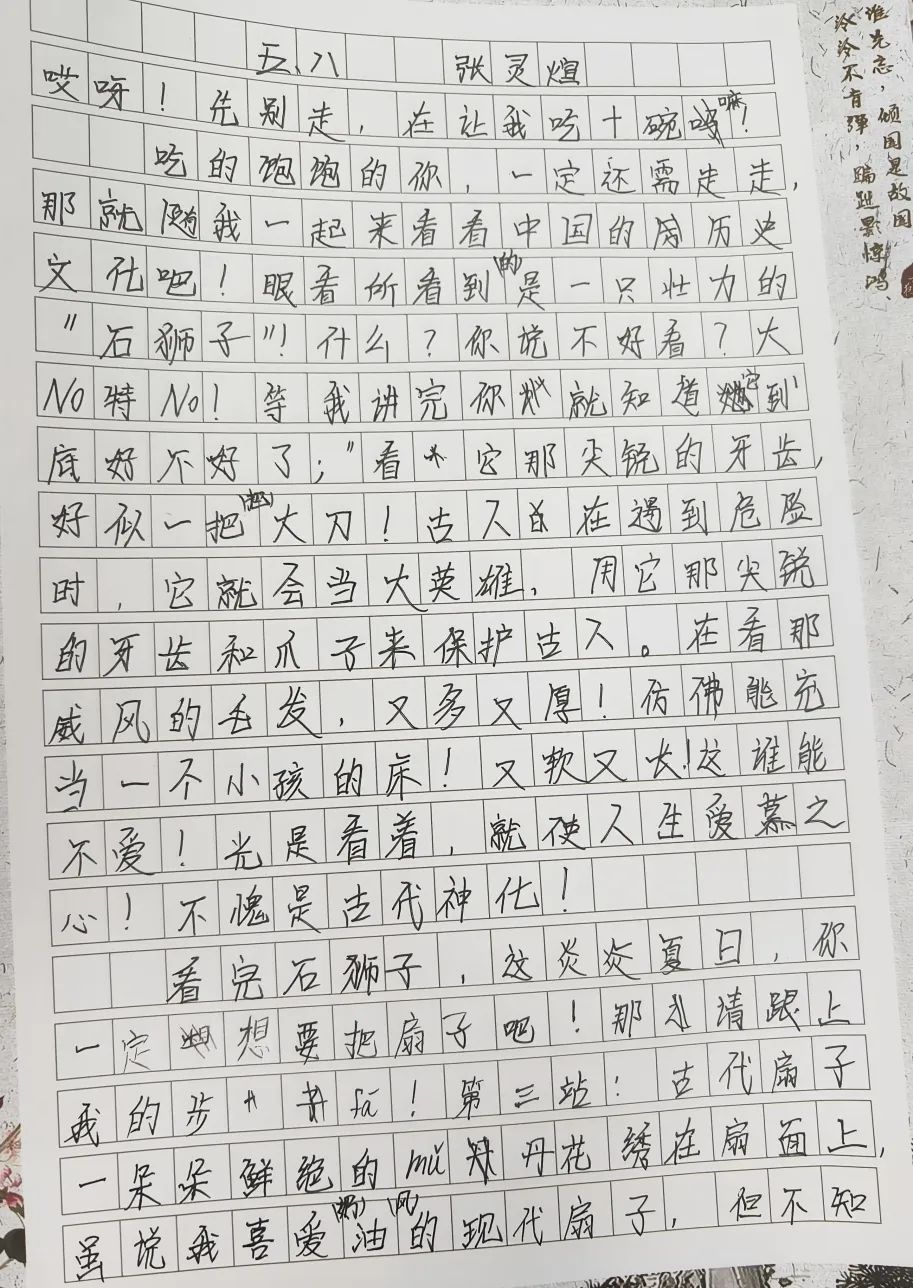 五、八 张灵煊
哎呀！先别走，在让我吃十碗嘛！
吃的饱饱的你，一定还需走走，
那就随我一起来看看中国的历史
文化吧！眼看所看到的是一只壮力的
“石狮子”！什么？你说不好看？大
No特No！等我讲完你就知道它到
底好不好了；”看它那尖锐的牙齿，
好似一把把大刀！古人在遇到危险
时，它就会当大英雄，用它那尖锐
的牙齿和爪子来保护古人。在看那
威风的毛发，又多又厚！仿佛能充
当一个小孩的床！又软又大！这谁能
不爱！光是看着，就使人生爱慕之
心！不愧是古代神化！
看完石狮子，这炎炎夏日，你
一定想要把扇子吧！那请跟上
我的步fá！第三站：古代扇子
一朵朵鲜绝的mǔ丹花绣在扇面上，
虽说我喜爱奶油风的现代扇子，但不知
谁先忘，倾国是故国
泠泠不肯弹，蹁跹影惊鸿